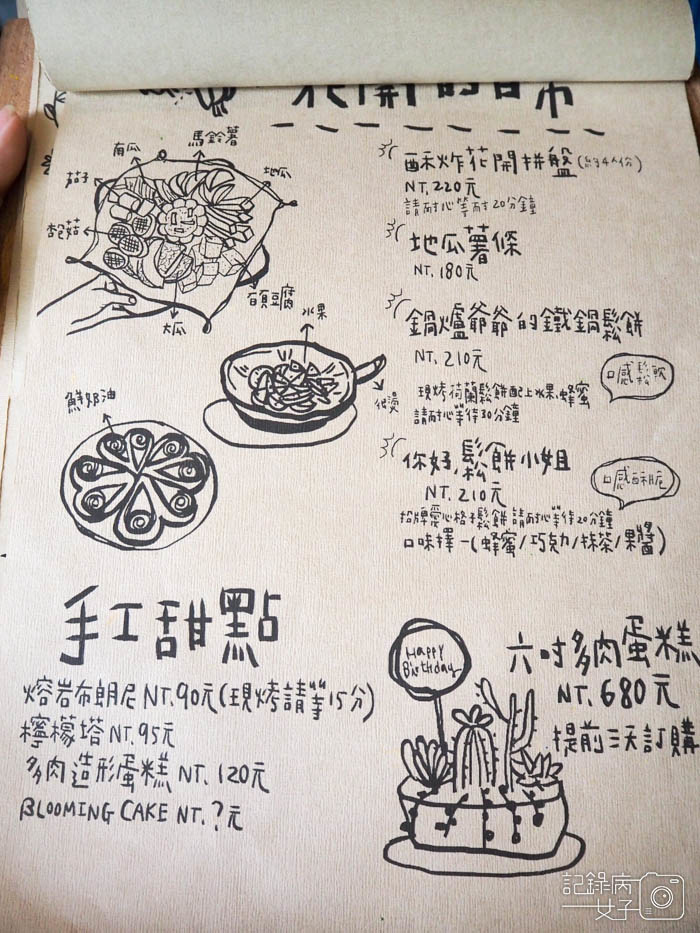 花開的日常
酥炸花開拼盤(約4人份)
NT.220元
請耐心等耐20分鐘
地瓜薯條
NT.180元
鍋爐爺爺的鐵鍋鬆餅
NT.210元
口感鬆軟
現烤荷蘭鬆餅配上水果.蜂蜜
請耐心等待30分鐘
你好,鬆餅小姐
NT.210元
口感酥脆
招牌愛心格子鬆餅 請耐心等待20分鐘
口味擇一(蜂蜜/巧克力/抹茶/果醬)
馬鈴薯
南瓜
地瓜
茄子
杏鮑菇
大瓜
百頁豆腐
水果
很燙
鮮奶油
手工甜點
熔岩布朗尼 NT.90元(現烤請等15分)
檸檬塔 NT.95元
多肉造形蛋糕 NT.120元
BLOOMING CAKE NT.?元
Happy
Birthday
六吋多肉蛋糕
NT.680元
提前三天訂購
記錄病
女子